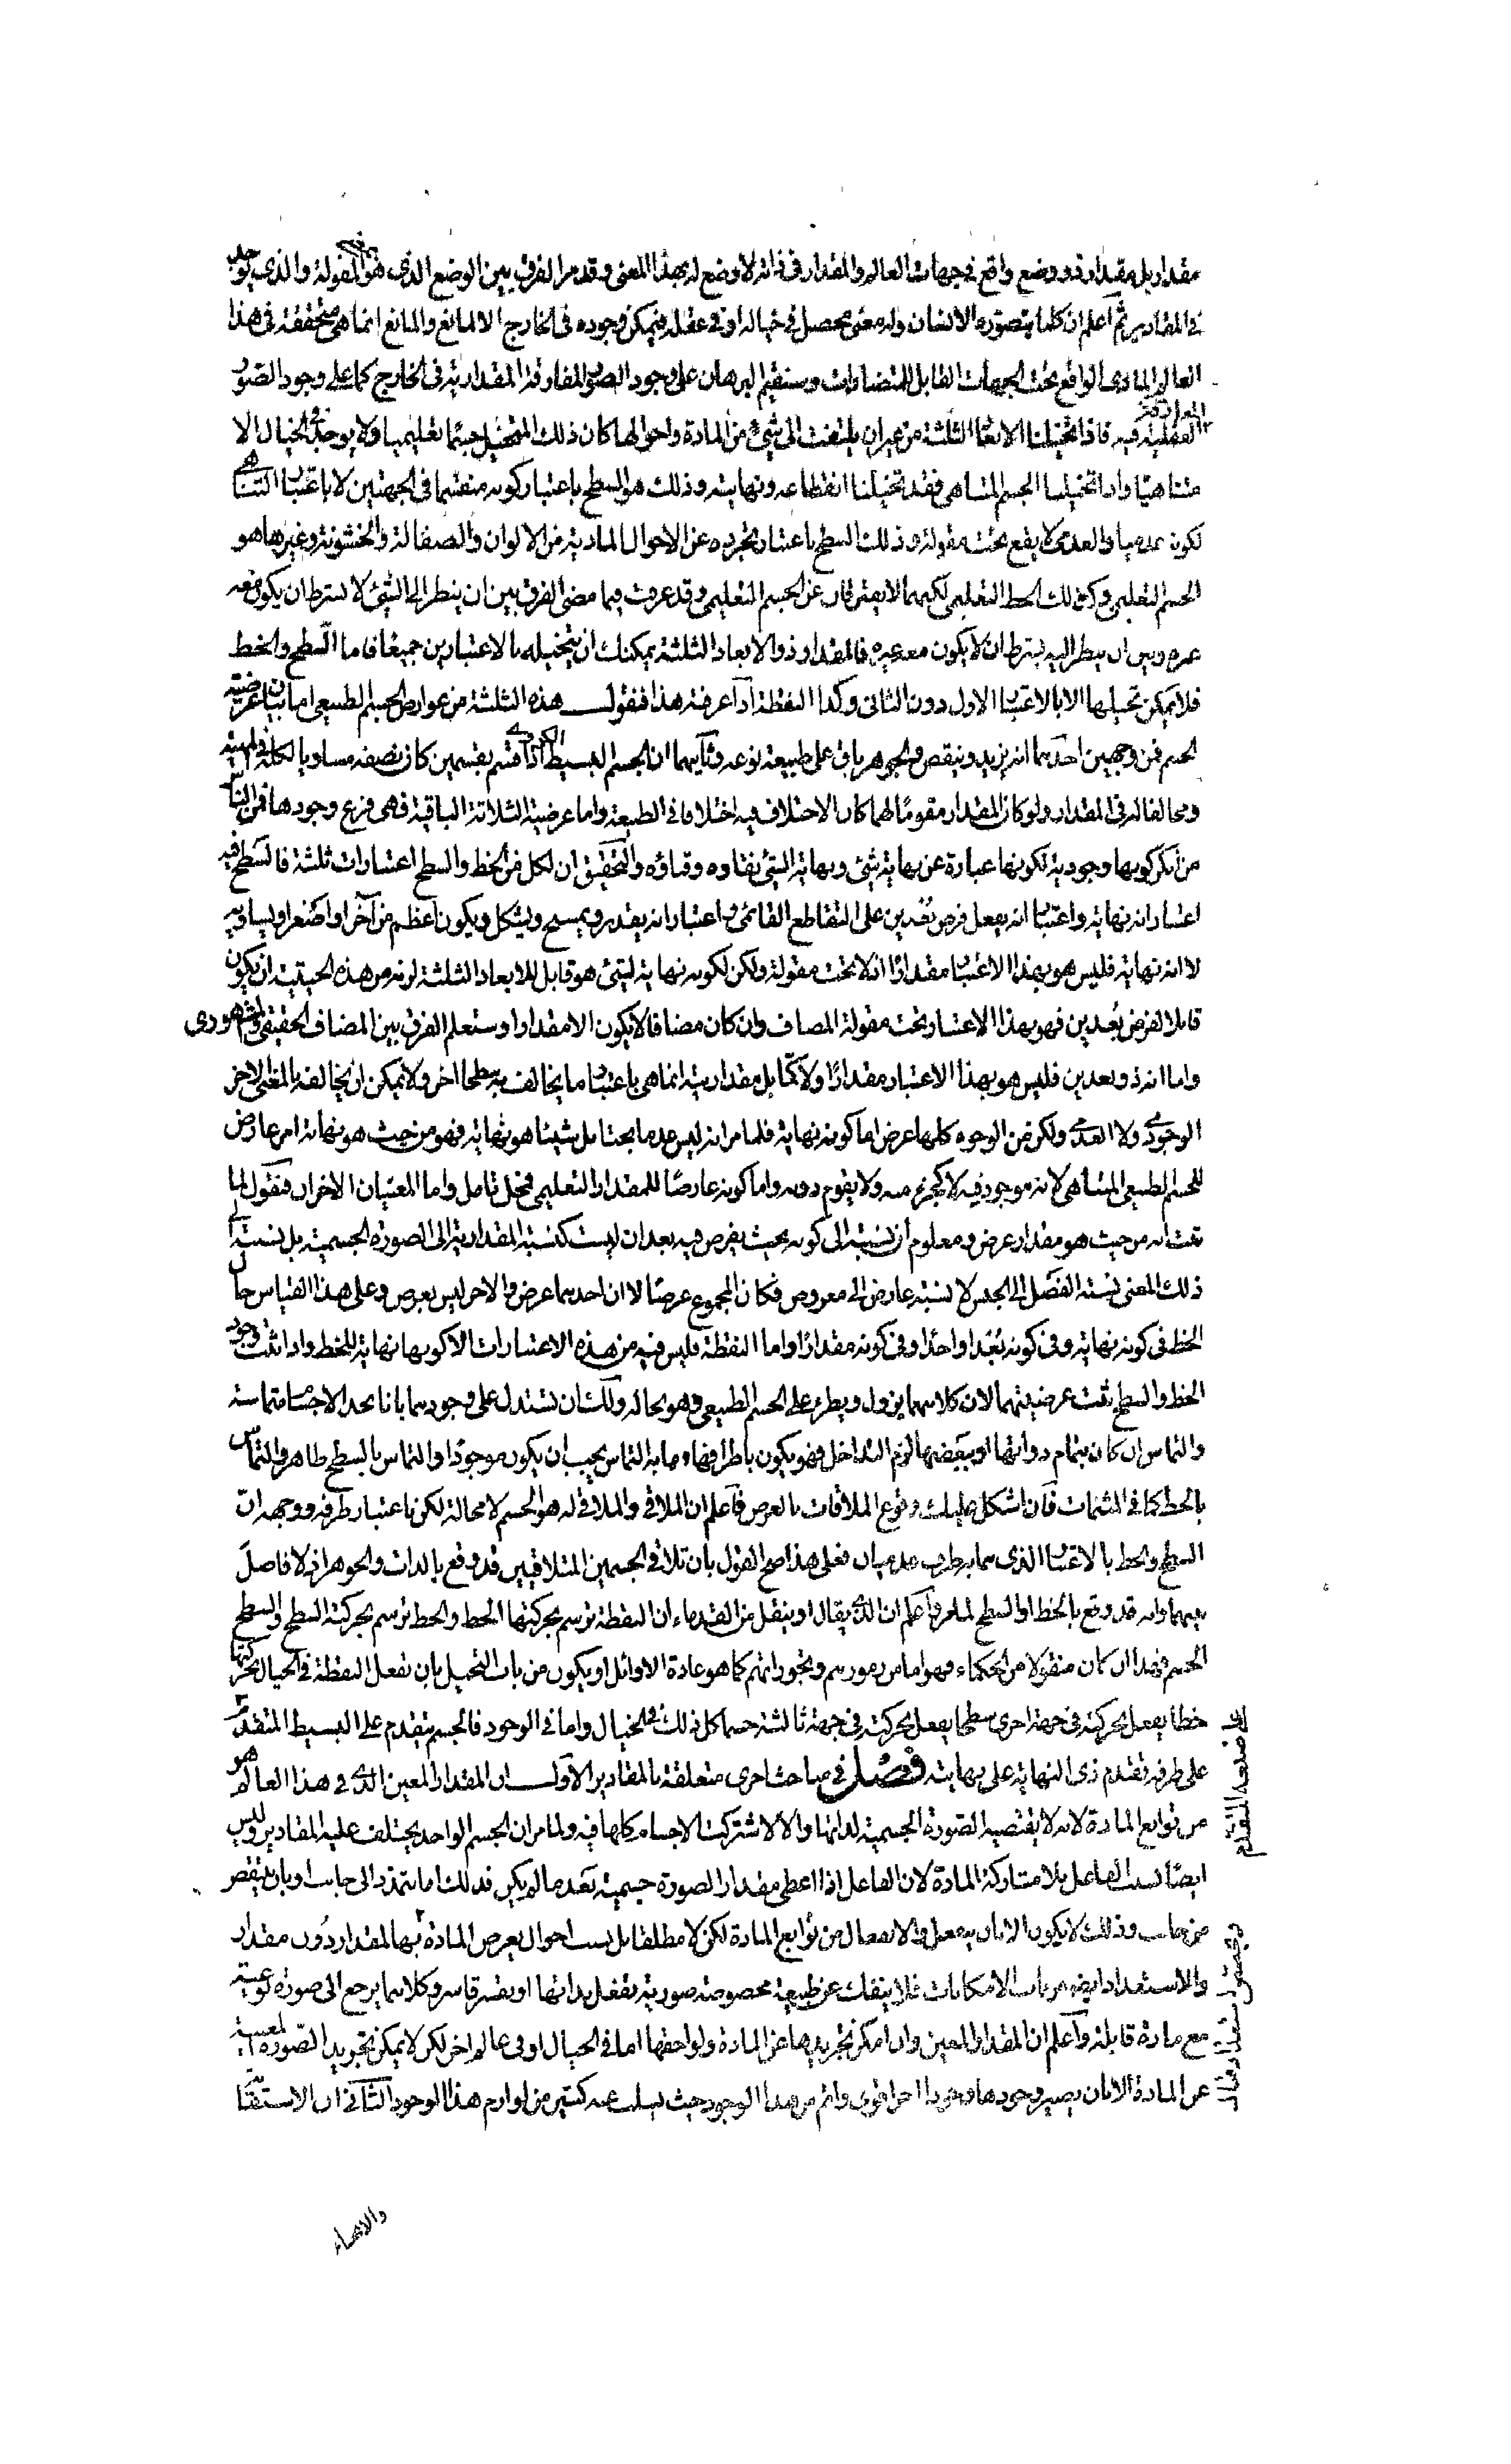 مقدار بل مقدار ذو وضع واقع في جهات العالم والمقدار في ذاته لا وضع له بهذا المعنى وقد مر الفرق بين الوضع الذي هو المقولة والذي يوجد
في المقادير ثم اعلم ان كلما يتصوره الانسان وله معنى محصل في خياله او في عقله فيمكن وجوده في الخارج الا لمانع والمانع انما هي متحققة في هذا
العالم المادي الواقع تحت الجهات القابل للمتضادات وسنقيم البرهان على وجود الصور المفارقة المقدارية في الخارج كما على وجود الصور
المفارقة
العقلية فيه فاذا تخيلنا الابعاد الثلثة من غير ان يلتفت الى شيء من المادة واحوالها كان ذلك المتخيل جسما تعليميا ولا يوجد في الخيال الا
متناهيا واذا تخيلنا الجسم المتناهي فقد تخيلنا انقطاعه ونهايته وذلك هو السطح باعتبار كونه منقسما في الجهتين لا باعتبار التناهي
لكونه عدميا والعدمي لا يقع تحت مقولة وذلك السطح باعتبار تجرده عن الاحوال المادية من الالوان والصقالة والخشونة وغيرها هو
الجسم التعليمي وكذلك الخط التعليمي لكنهما لا يفترقان عن الجسم التعليمي وقد عرفت فيما مضى الفرق بين ان ينظر الى الشيء لا بشرط ان يكون معه
غيره وبين ان ينظر اليه بشرط ان لا يكون معه غيره فالمقدار ذو الابعاد الثلثة يمكنك ان تتخيله بالاعتبارين جميعا فاما السطح والخط
فلا يمكن تخيلها الا بالاعتبار الاول دون الثاني وكذا النقطة اذا عرفت هذا فنقول هذه الثلثة من عوارض الجسم الطبيعي اما بيان عرضية
الجسم فمن وجهين احدهما انه يزيد وينقص والجوهر باق على طبيعة نوعه وثانيهما ان الجسم البسيط الكروي اذا قسم بقسمين كان نصفه مساويا لكله في المهية
ومخالفا له في المقدار ولو كان المقدار مقوما لهما كان الاختلاف فيه اختلافا في الطبيعة واما عرضية الثلاثة الباقية فهي فرع وجودها فمن الناس
من انكر كونها وجودية لكونها عبارة عن نهاية شيء ونهاية الشيء نفاده وفناؤه والتحقيق ان لكل من الخط والسطح اعتبارات ثلثة فالسطح فيه
اعتبار انه نهاية واعتبار انه يفعل فرض بعدين على التقاطع القائمي واعتبار انه يقدر ويمسح ويشكل ويكون اعظم من آخر او اصغر او يساويه
لا انه نهاية فليس هو بهذا الاعتبار مقدارا اذ لا تحت مقولة ولكن لكونه نهاية لشيء هو قابل للابعاد الثلثة لزمه من هذه الحيثية ان يكون
قابلا لفرض بعدين فهو بهذا الاعتبار تحت مقولة المضاف وان كان مضافا لا يكون الا مقدارا وستعلم الفرق بين المضاف الحقيقي والمشهوري
واما انه ذو بعدين فليس هو بهذا الاعتبار مقدارا ولا كما بل مقداريته انما هي باعتبار ما يخالف به سطحا آخر ولا يمكن ان يخالفه بالمعنى الاخر
الوجودي ولا العدمي ولكن من الوجوه كلها عرض اما كونه نهاية فلما مر انه ليس عدما بحتا بل شيئا هو نهاية فهو من حيث هو نهاية امر عارض
للجسم الطبيعي المتناهي لانه موجود فيه لا كجزء منه ولا يقوم دونه واما كونه عارضا للمقدار التعليمي فمحل تامل واما المعنيان الاخران فنقول لما
ثبت انه من حيث هو مقدار عرض ومعلوم ان نسبته الى كونه بحيث يفرض فيه بعدان ليست كنسبة المقدارية الى الصورة الجسمية بل نسبته الى
ذلك المعنى نسبة الفصل الى الجنس لا نسبة عارض الى معروض فكان المجموع عرضا لا ان احدهما عرض والاخر ليس بعرض وعلى هذا القياس حال
الخط في كونه نهاية وفي كونه بعدا واحدا وفي كونه مقدارا واما النقطة فليس فيه من هذه الاعتبارات الا كونها نهاية للخط واذا ثبت وجود
الخط والسطح ثبت عرضيتهما لان كلا منهما يزول ويطرء على الجسم الطبيعي وهو بحاله ولك ان تستدل على وجودهما بانا نجد الاجسام متماسة
والتماس ان كان بتمام ذواتها او ببعضها لزم التداخل فهو يكون باطرافها وما به التماس يجب ان يكون موجودا والتماس بالسطح ظاهر والتماس
بالخط كما في المثمات فان اشكل عليك وقوع الملاقات بالعرض فاعلم ان الملاقي والملاقى له هو الجسم لا محالة لكن باعتبار طرفه ووجهه ان
السطح والخط بالاعتبار الذي هما به طرف عدميان فعلى هذا صح القول بان تلاقي الجسمين المتلاقيين قد وقع بالذات والجوهر اذ لا فاصل
بينهما وانه قد وقع بالخط او السطح لما مر واعلم ان الذي يقال او ينقل من القدماء ان النقطة ترسم بحركتها الخط والخط ترسم بحركته السطح والسطح
الجسم فهذا ان كان منقولا من الحكماء فهو اما من رموزهم وتجوزاتهم كما هو عادة الاوائل او يكون من باب التخييل بان تفعل النقطة في الخيال بحركتها
خطا يفعل بحركته في جهة اخرى سطحا يفعل بحركته في جهة ثالثة جسما كل ذلك في الخيال واما في الوجود فالجسم يتقدم على البسيط المتقدم
على طرفه تقدم ذي النهاية على نهايته فصل في مباحث اخرى متعلقة بالمقادير الاول ان المقدار المعين الذي في هذا العالم هو
من توابع المادة لانه لا يقتضيه الصورة الجسمية لذاتها والا لاشتركت الاجسام كلها فيه ولما مر ان الجسم الواحد يختلف عليه المقادير وليس
ايضا لسبب الفاعل بلا مشاركة المادة لان الفاعل اذا اعطى مقدار الصورة جسمية بعد ما لم يكن فذلك اما بتمدد الى جانب او بان ينقص
من جانب وذلك لا يكون الا بان ينفعل والانفعال من توابع المادة لكن لا مطلقا بل بسبب احوال يعرض المادة بها المقدار دون مقدار
والاستعداد ايضا من باب الامكانات فلا ينفك عن طبيعة مخصوصة صورية تفعل بذاتها او بقسر قاسر وكلاهما يرجع الى صورة نوعية
مع مادة قابلة واعلم ان المقدار المعين وان امكن تجريدها عن المادة ولواحقها اما في الخيال او في عالم اخر لكن لا يمكن تجريد الصورة
عن المادة الا بان يصير وجودها وجودا اخر اقوى واتم من هذا الوجود حيث يسلب عنه كثير من لوازم هذا الوجود الثاني ان الاستقا